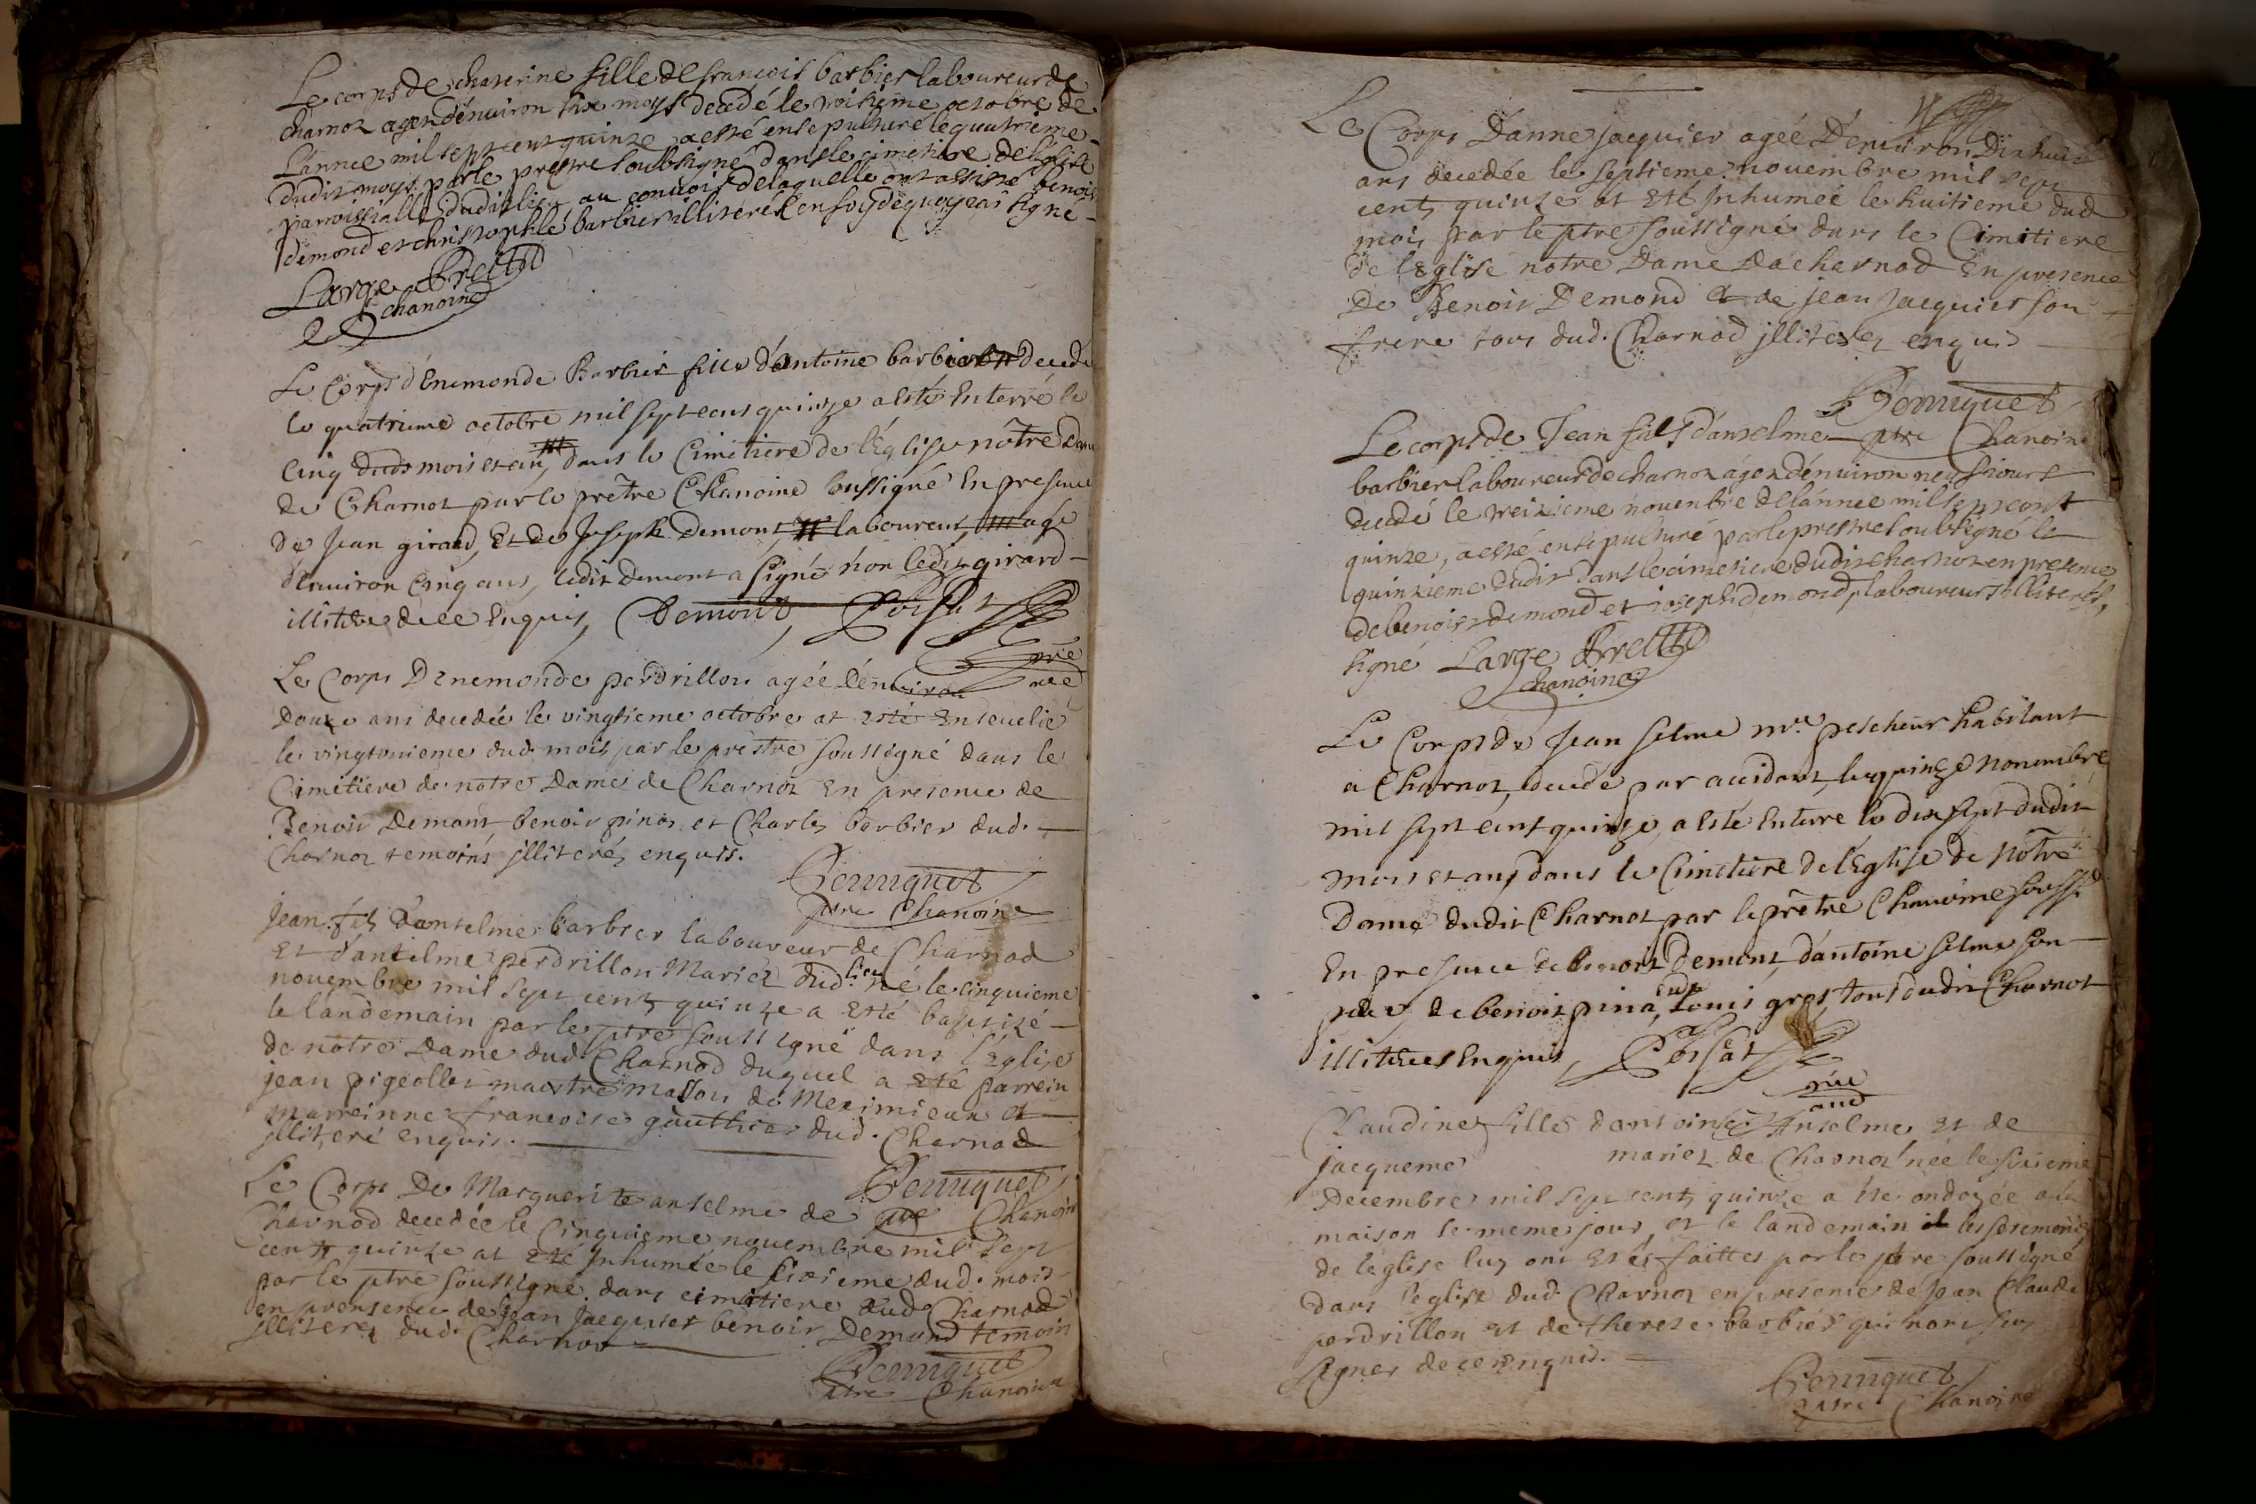 Le corps de chaterine fille de francois barbier laboureur de
charnoz agez d'énuiron six moys decedé le troisieme octobre de
L'annee mil sept cent quinze a esté ensepulturé le quatrieme
dudit moys par le prestre soubsigné dans le cimetiere de l'eglise
parroissialle dudit lieu au conuois de laquelle ont assisté benoit
démond et christophle barbier illiterés en foy de quoy j'ai signé
Large Prettre
chanoine
Le Corps d'Enemonde Barbier fille d'antoine barbier decedé
le quatrieme octobre mil sept cens quinze a esté Enterré le
Cinq dudt mois et an, dans le Cimetiere de l'Eglise nôtre dame
de Charnoz par le prêtre Chanoine soussigné En presence
de Jean girard, Et de Joseph demont laboureur, agé
d'enuiron Cinq ans, ledit demont a signé non ledit girard
illitere de ce Enquis, Demont, Poissat
ptre
Le Corps D'enemonde perdrillon agée d'enuiron
Douze ans decedée le vingtieme octobre at esté Enseuelie
le vingtunieme dud. mois par le prestre soussigné dans le
Cimetiere de notre Dame de Charnoz En presence de
Benoit Demont, benoit pinaz et Charles barbier dud.
Charnoz temoins jlliteréz enquis.
ptre Chanoine
Jean fils D'anselme barbier laboureur de Charnod
Et d'antelme perdrillon Mariez dud. lieu né le cinquieme
nouembre mil sept centz quinze a esté baptizé
le landemain par le ptre soussigné dans l'Eglise
de notre Dame dud. Charnod duquel a esté parrein
jean pigeollet maistre Masson de Meximieux et
marreinne francoise gauthier dud. Charnod
jlliteré enquis.
Le Corps De Marguerite anselme de
ptre Chanoine
Charnod decedée le Cinquieme nouembre mil sept
centz quinze at esté Inhumée le sixieme dud. mois
par le ptre soussigné dans cimetiere dud. Charnod
en presence de jean Jacquier benoit Demond temoin
jlliterez dud. Charnod
ptre Chanoine
Le Corps D'anne jacquier agée D'enuiron Dixhuit
ans decedée le septieme nouembre mil sept
centz quinze at Eté Inhumée le huitieme dud
mois par le ptre soussigné dans le Cimitiere
de l'Eglise notre Dame de Charnod En presence
De Benoit Demond et de jean Jacquier son
frere tous dud. Charnod jlliterez enquis
Le corps de Jean fils d'anselme
ptre Chanoine
barbier laboureur de charnoz agez d'énuiron neuf jours
decedé le treizieme nouenbre de l'annee mil sept cent
quinze, a esté ensepulturé par le prestre soubsigné le
quinzieme dudit dans le cimetiere dudit charnoz en presence
de benoist demond et joseph demond, laboureurs illiterés,
signé Large Prettre
chanoine
Le Corps de Jean selme mre. pescheur habitant
a Charnoz, decedé par accidant, le quinze nouembre
mil sept cent quinze, a esté Enterré le dix sept dudit
mois et an, dans le Cimetiere de l'Eglise de Nôtre
Dame dudit Charnoz par le prêtre Chanoine souss.
En presence de benoit Demont, d'antoine selme son
de benoit pina, louis gros, tous dudit Charnoz
illiteres Enquis, Poissat
Claudine fille d'antoine Anselme et de
jacqueme mariez de Charnoz née le sixieme
Decembre mil sept centz quinze a ete ondoyée a la
maison le meme jour, et le landemain les seremonies
de l'eglise luy ont estés faittes par le ptre soussigné
dans l'eglise dud. Charnoz en presence de jean Claude
perdrillon et de therese barbier qui n'ont sceu
signer de ce enquis.
ptre Chanoine